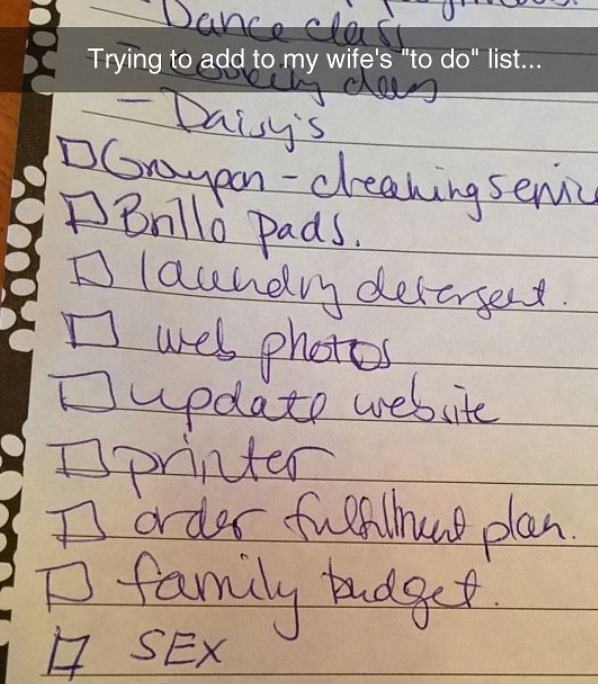 Dance class
Trying to add to my wife's "to do" list...
- cookery class
- Daisy's
Groupon - cleaning servic
Brillo pads.
laundry detergent.
web photos
update website
printer
order fulfillment plan.
family budget.
SEX